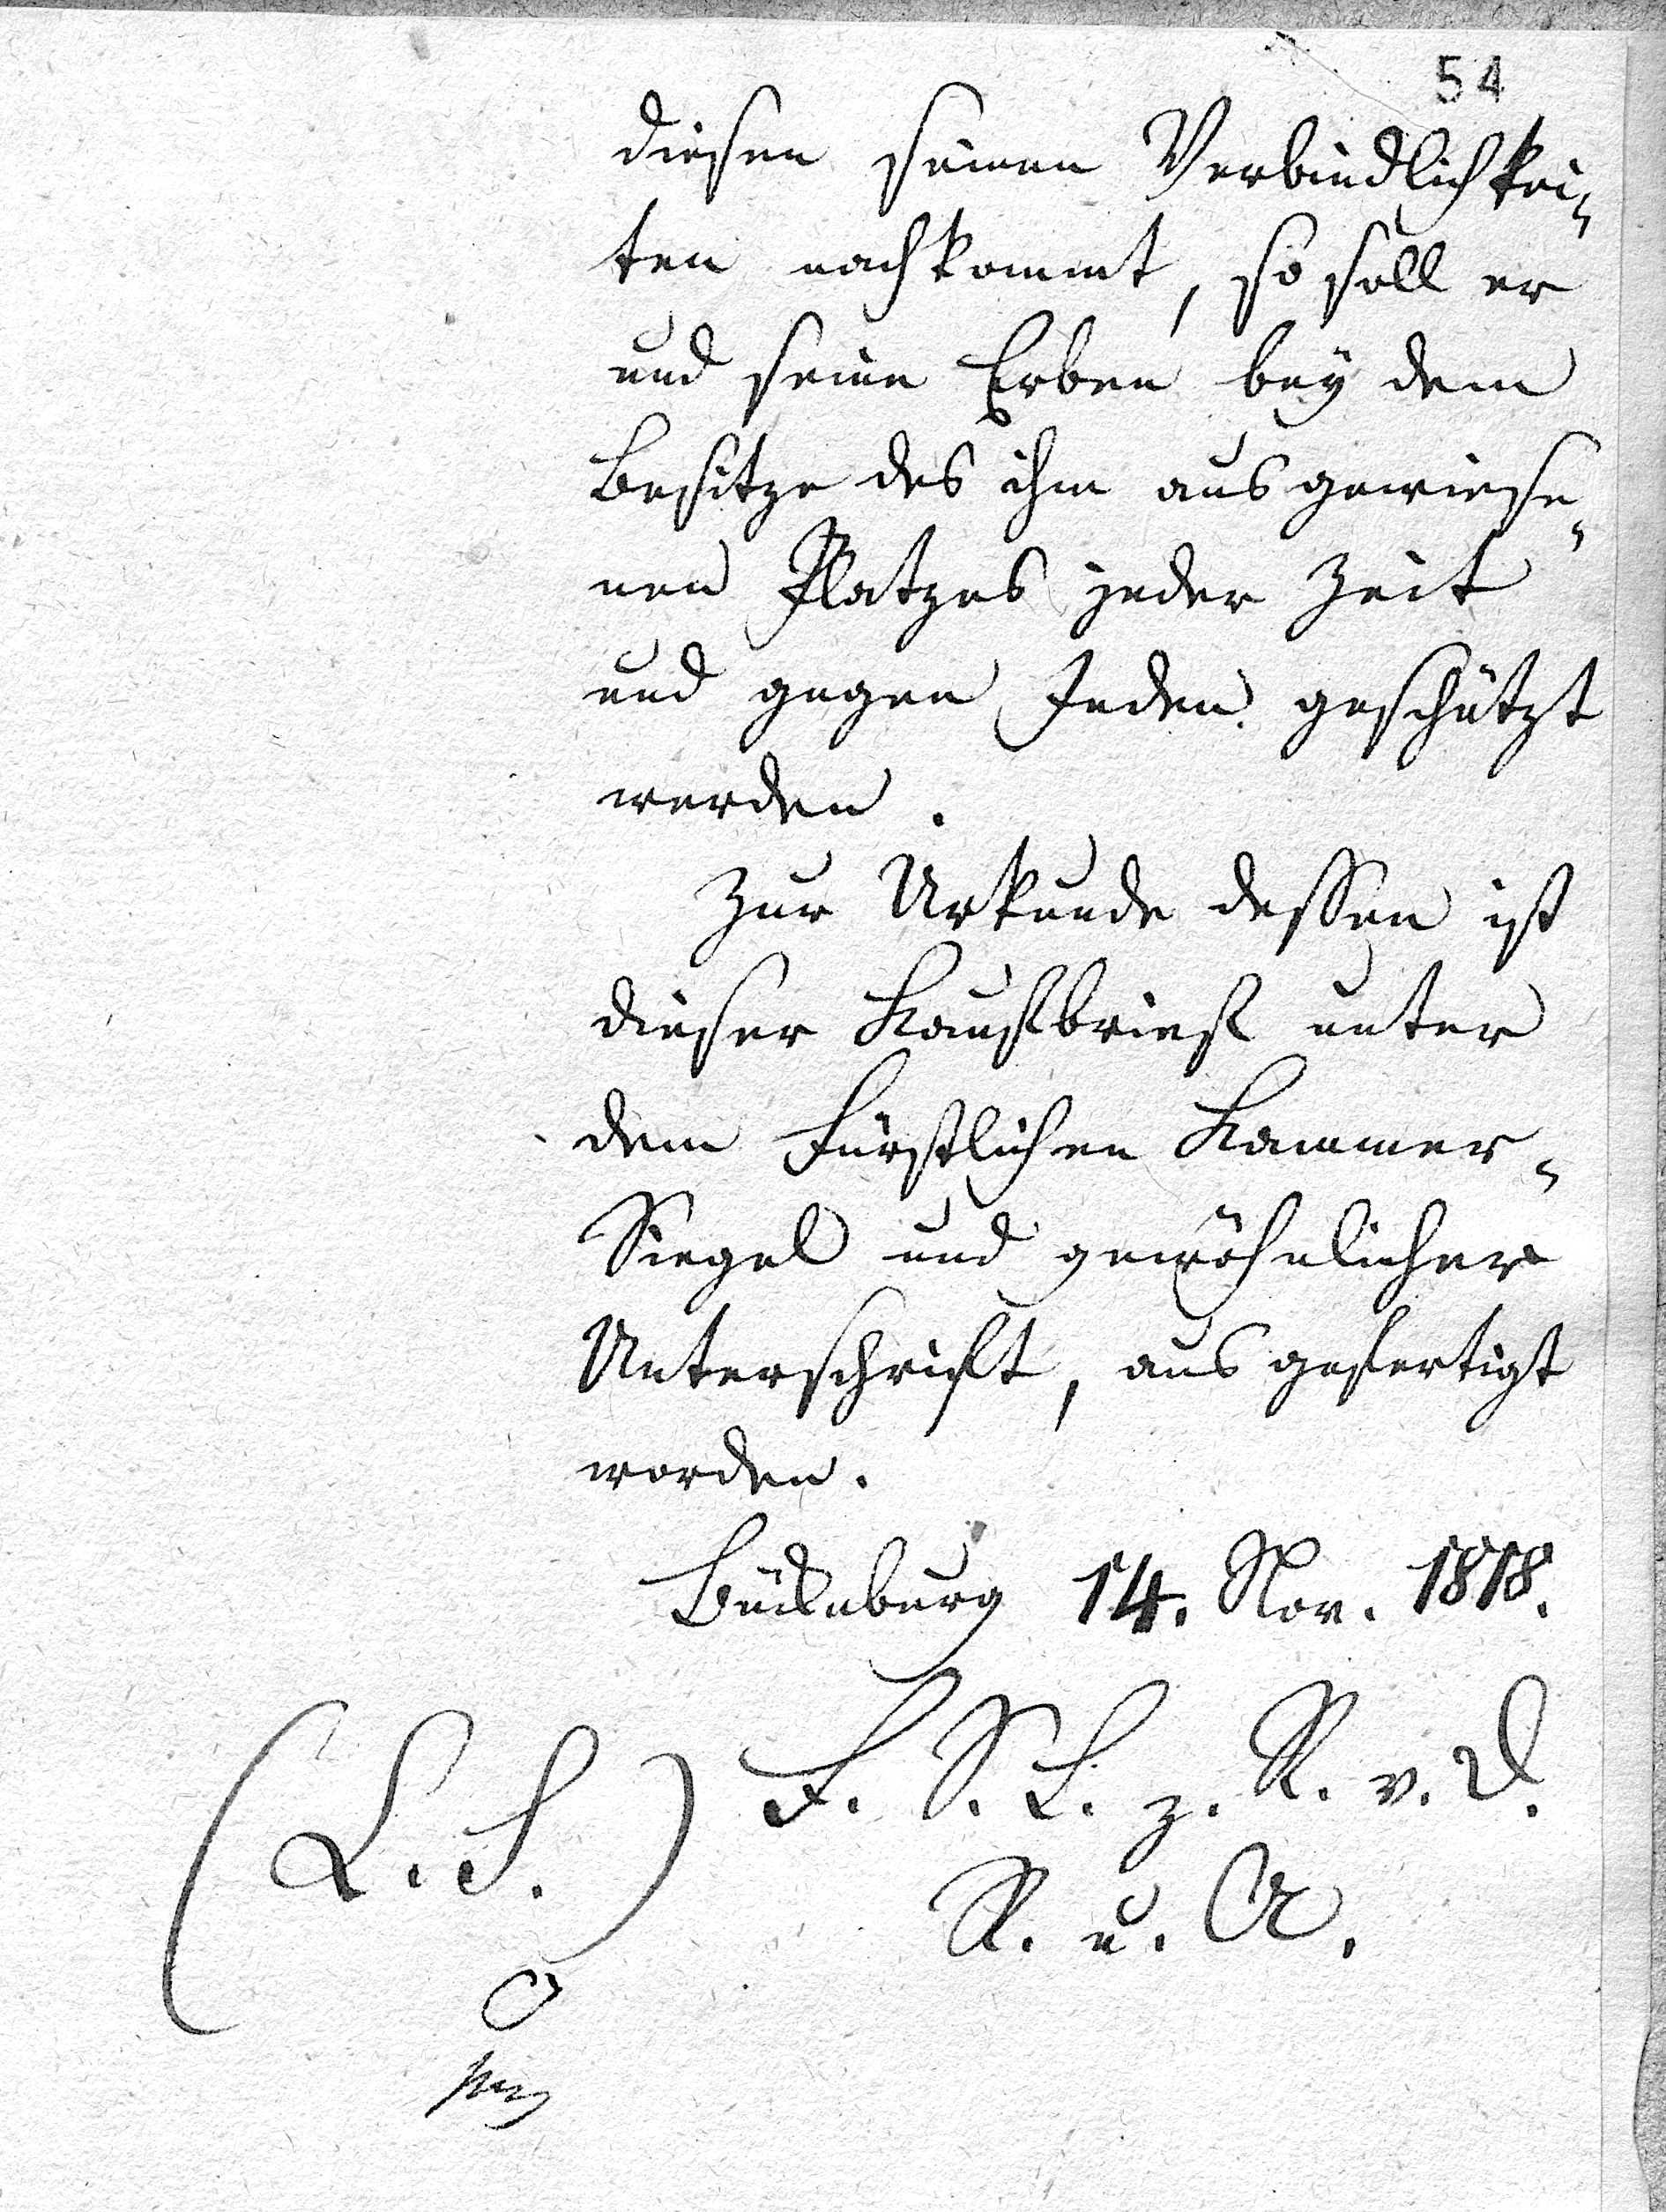 54
diesen seinen Verbindlichkei-
ten nachkommt, so soll er
und seine Erben bey dem
Besitze des ihm ausgewiese-
nen Platzes jeder Zeit
und gegen Jeden geschützt
werden.
Zur Urkunde dessen ist
dieser Kaufbrief unter
dem Fürstlichen Kammer-
Siegel und gewöhnlicher
Unterschrift, ausgefertigt
worden.
Bückeburg 14. Nov. 1818.
(L. S.) F. S. L. z. R. v. D.
R. u. A.